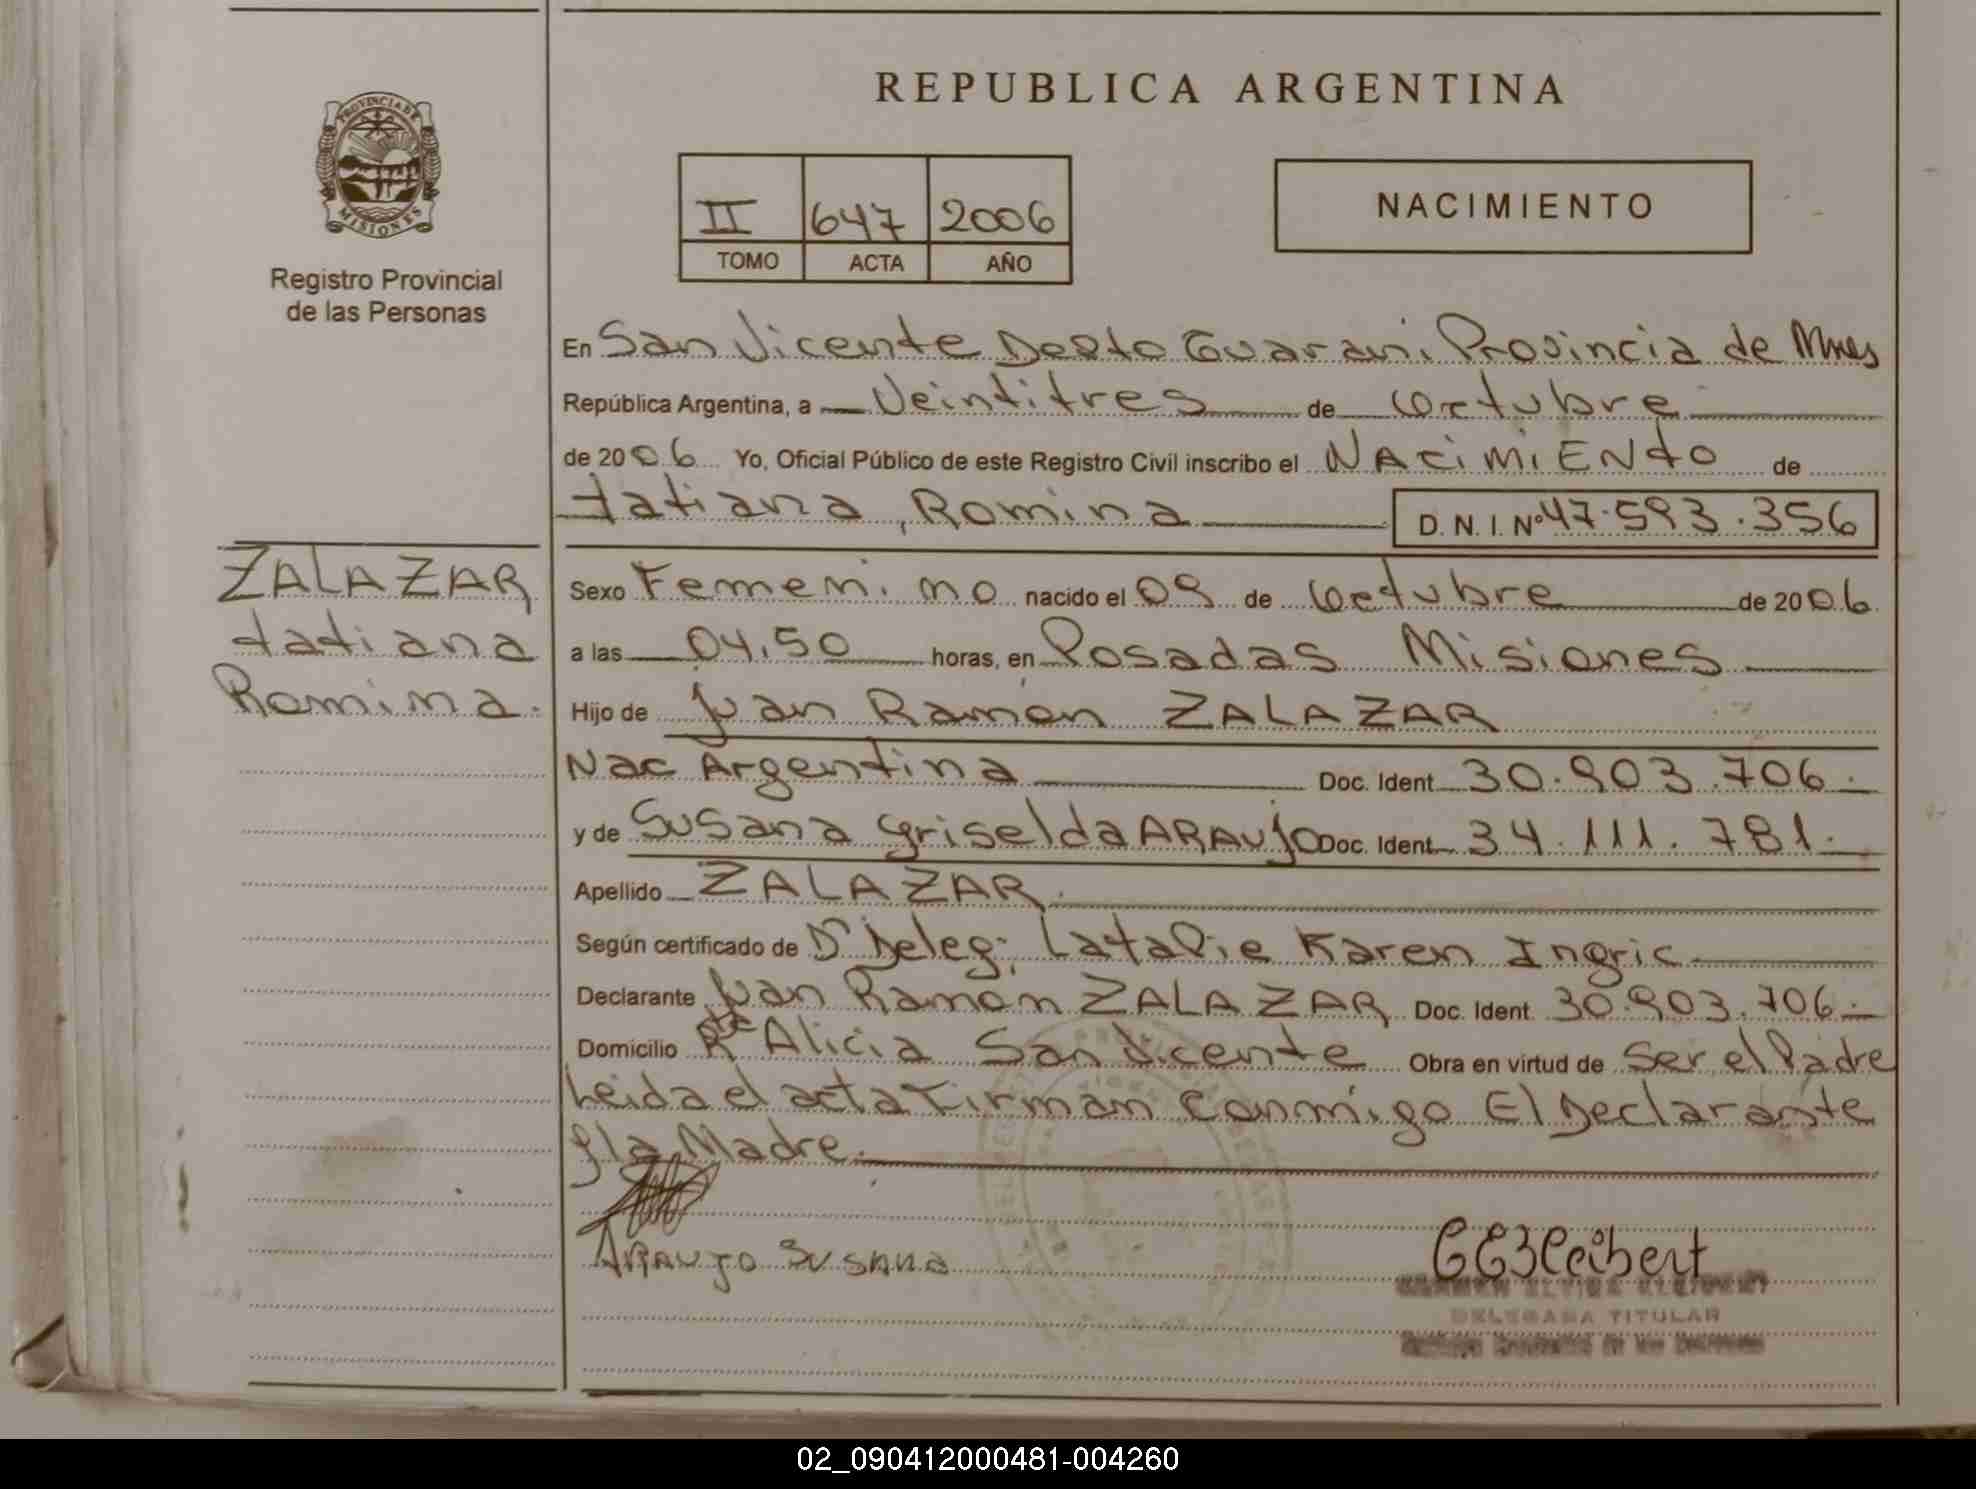 REPUBLICA ARGENTINA
PROVINCIA DE
MISIONES
Registro Provincial
de las Personas
II 647 2006
TOMO ACTA AÑO
NACIMIENTO
En San Vicente Depto Guarani. Provincia de Mnes
República Argentina, a Veintitres de Octubre
de 2006 Yo, Oficial Público de este Registro Civil inscribo el NACIMIENTO de
Tatiana, Romina D.N.I. Nº 47.593.356
ZALAZAR
Tatiana
Romina.
Sexo Femenino nacido el 09 de Octubre de 2006
a las 04.50 horas, en Posadas Misiones
Hijo de Juan Ramón ZALAZAR
Nac Argentina Doc. Ident. 30.903.706.
y de Susana Griselda ARAUJO Doc. Ident. 34.111.781.
Apellido ZALAZAR
Según certificado de Dr Deleg; Latalie Karen Ingric
Declarante Juan Ramón ZALAZAR Doc. Ident. 30.903.706.
Domicilio Alicia San Vicente Obra en virtud de Ser el Padre
Leida el acta Firman Conmigo El Declarante
y la Madre.
ARAUJO SUSANA
DELEGADA TITULAR
02_090412000481-004260